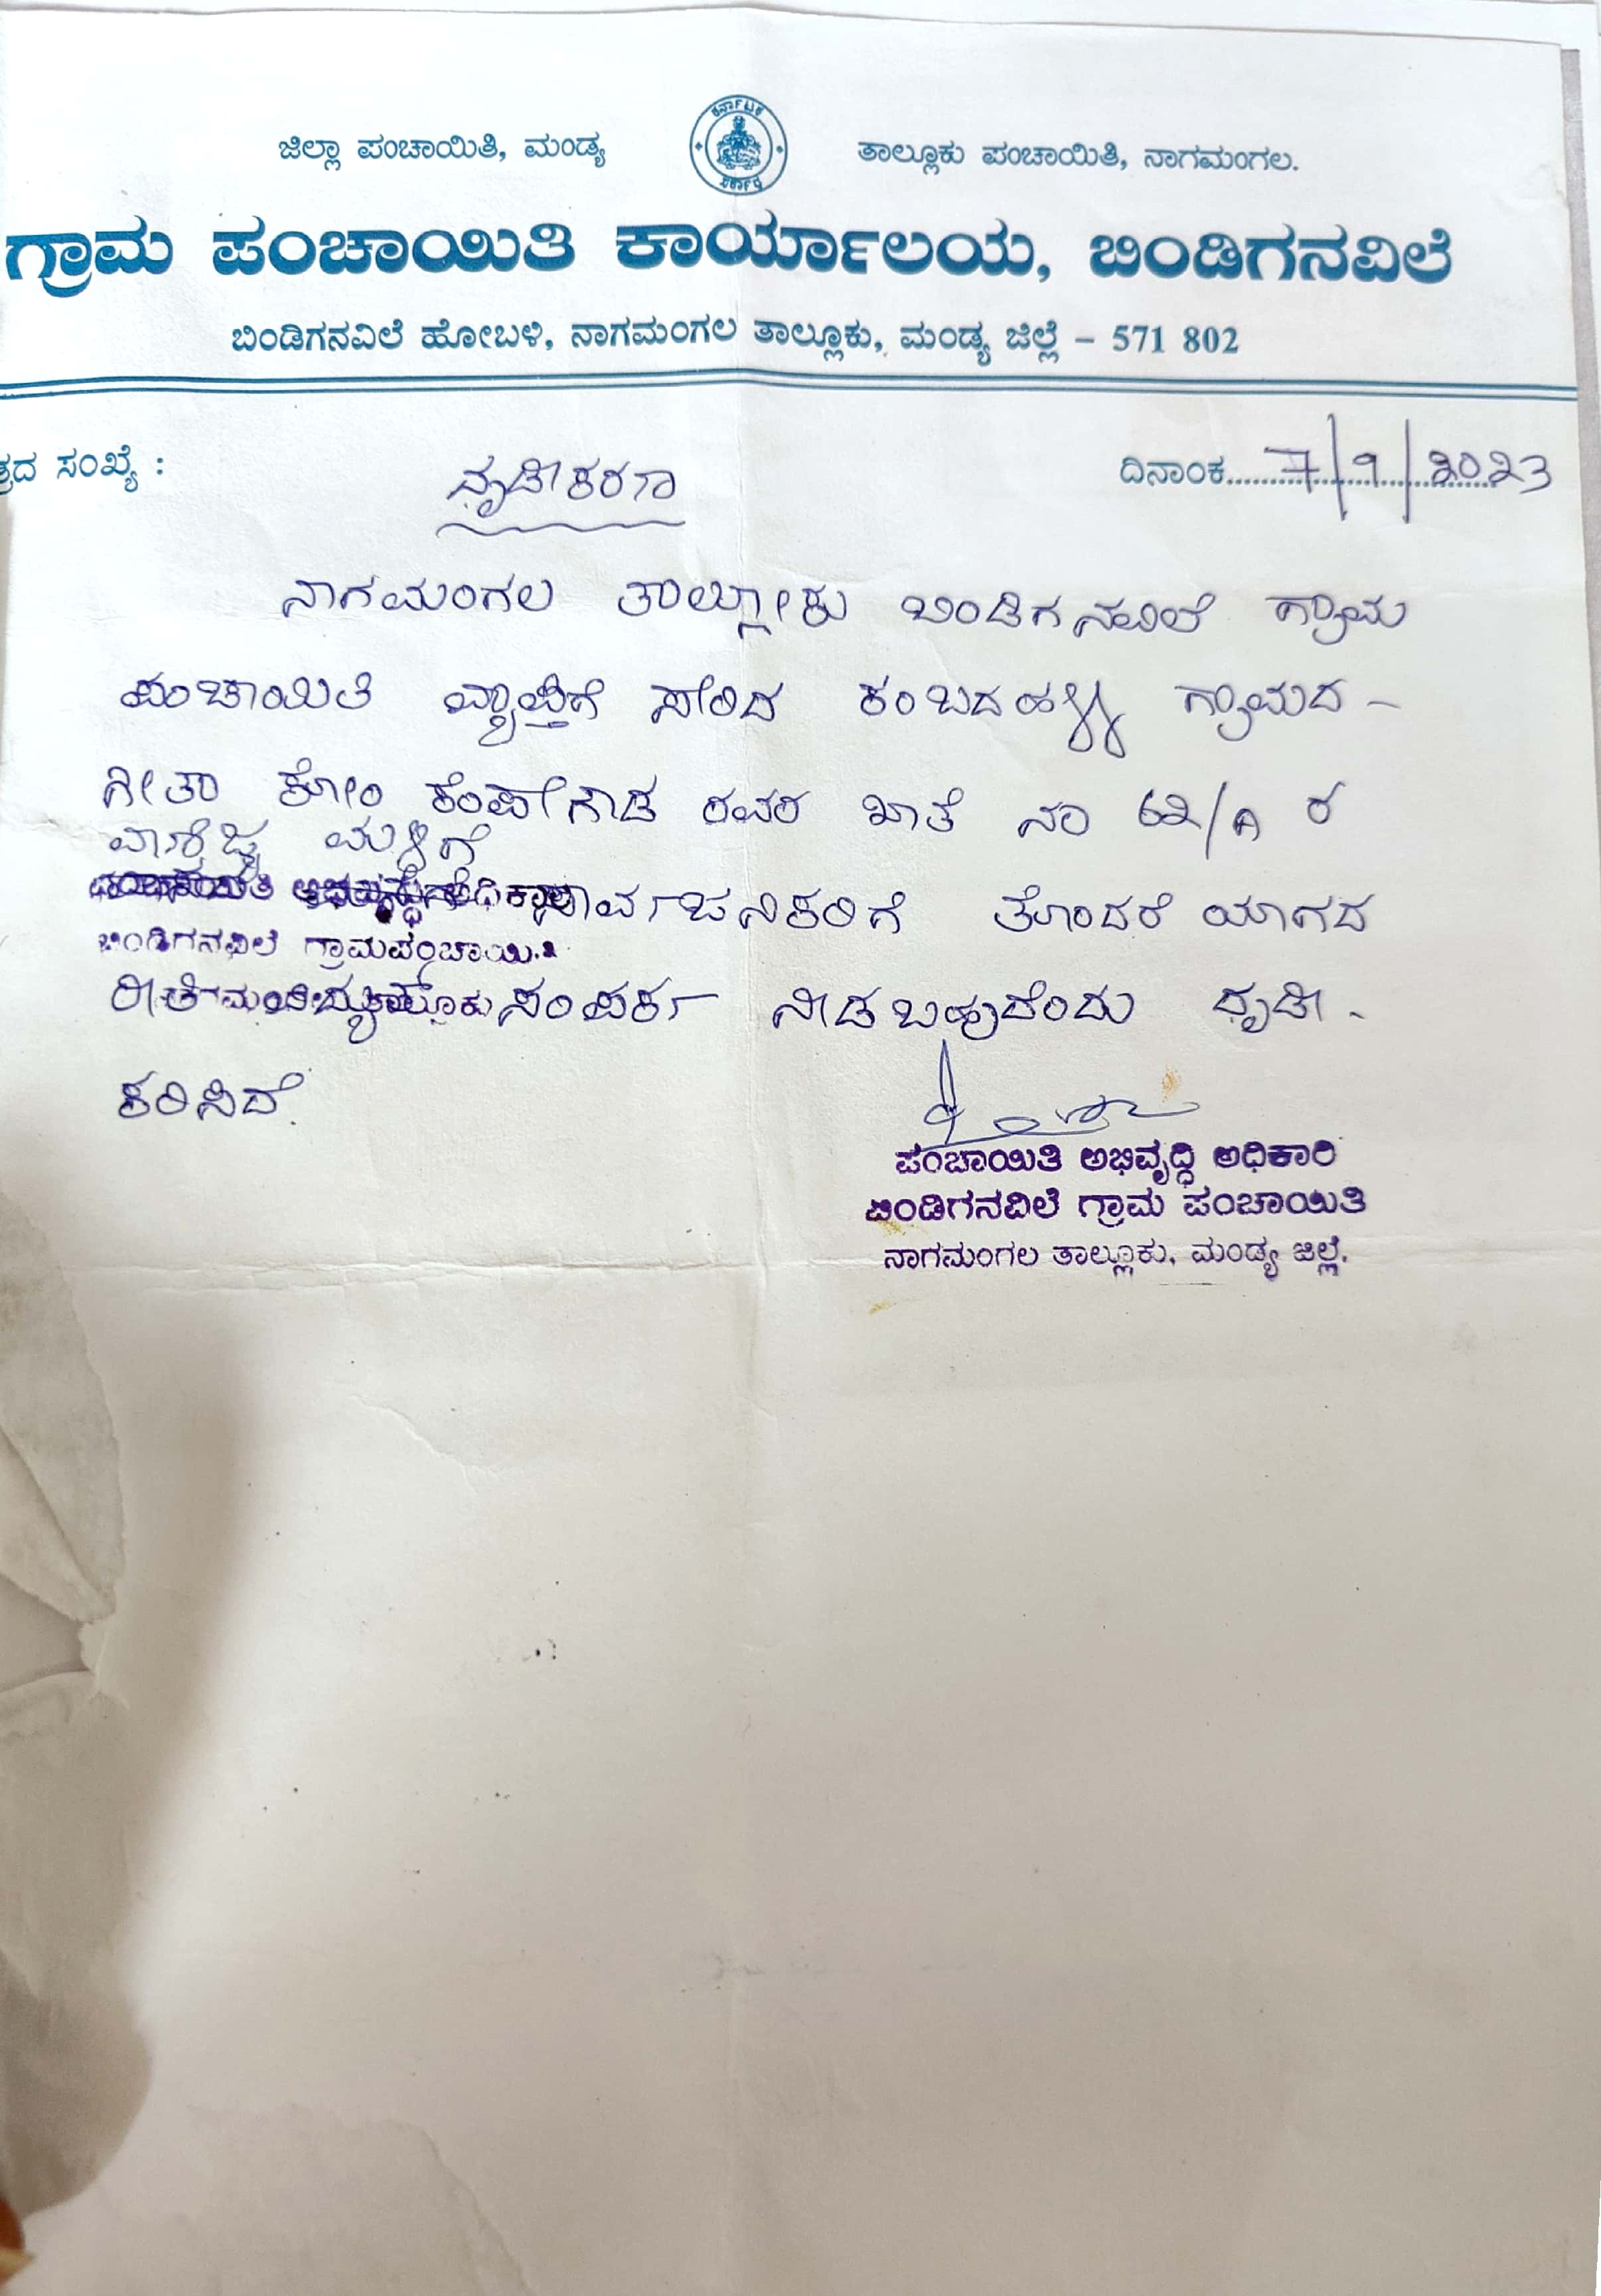 ಜಿಲ್ಲಾ ಪಂಚಾಯಿತಿ, ಮಂಡ್ಯ
ಕರ್ನಾಟಕ ಸರ್ಕಾರ
ತಾಲ್ಲೂಕು ಪಂಚಾಯಿತಿ, ನಾಗಮಂಗಲ.
ಗ್ರಾಮ ಪಂಚಾಯಿತಿ ಕಾರ್ಯಾಲಯ, ಬಿಂಡಿಗನವಿಲೆ
ಬಿಂಡಿಗನವಿಲೆ ಹೋಬಳಿ, ನಾಗಮಂಗಲ ತಾಲ್ಲೂಕು, ಮಂಡ್ಯ ಜಿಲ್ಲೆ – 571 802
ಸಂಖ್ಯೆ :
ದಿನಾಂಕ 7/9/2023
ದೃಡೀಕರಣ
ನಾಗಮಂಗಲ ತಾಲ್ಲೂಕು ಬಿಂಡಿಗನವಿಲೆ ಗ್ರಾಮ
ಪಂಚಾಯಿತಿ ವ್ಯಾಪ್ತಿಗೆ ಸೇರಿದ ಕಂಬದಹಳ್ಳಿ ಗ್ರಾಮದ -
ಗೀತಾ ಕೋಂ ಕೆಂಪೇಗೌಡ ರವರ ಖಾತೆ ನಂ 62/A ರ
ವಾಣಿಜ್ಯ ಮಳಿಗೆ
ಸಾರ್ವಜನಿಕರಿಗೆ ತೊಂದರೆ ಯಾಗದ
ಬಿಂಡಿಗನವಿಲೆ ಗ್ರಾಮಪಂಚಾಯಿತಿ
ರೀತಿ ವಿದ್ಯುತ್ ಸಂಪರ್ಕ ನೀಡಬಹುದೆಂದು ದೃಡೀ -
ಕರಿಸಿದೆ.
ಪಂಚಾಯಿತಿ ಅಭಿವೃದ್ಧಿ ಅಧಿಕಾರಿ
ಬಿಂಡಿಗನವಿಲೆ ಗ್ರಾಮ ಪಂಚಾಯಿತಿ
ನಾಗಮಂಗಲ ತಾಲ್ಲೂಕು, ಮಂಡ್ಯ ಜಿಲ್ಲೆ.